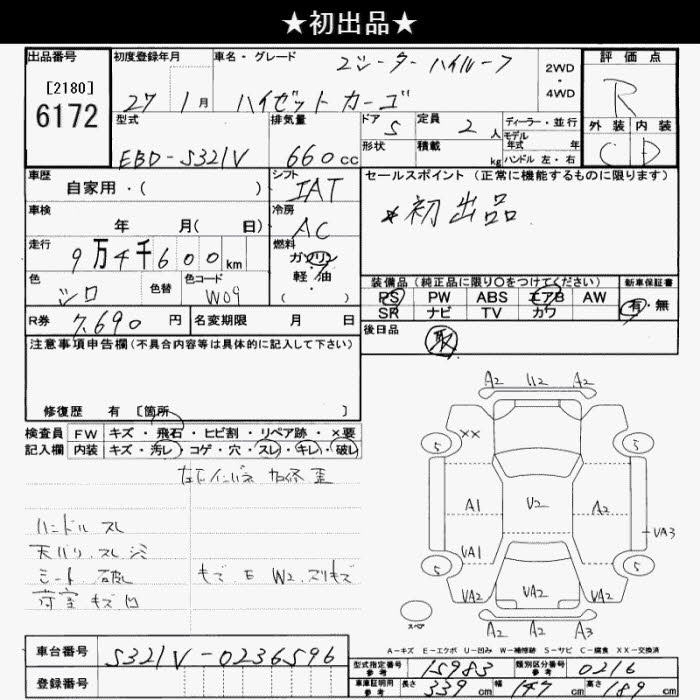 ★初出品★
出品番号 初度登録年月 車名・グレード 2シーター ハイルーフ 2WD・4WD 評価点
[2180]
6172
27 1月 ハイゼットカーゴ R
型式 排気量 ドア 5 定員 2人 ディーラー・並行 外装 内装
EBD-S321V 660cc 形状 積載 kg モデル年式 年 ハンドル 左・右 C D
車歴 シフト セールスポイント(正常に機能するものに限ります)
自家用・( ) IAT
*初出品
車検 年 月( 日) 冷房 AC
走行 9万4千600km 燃料 ガソリン 軽油 ( )
色 シロ 色替 色コード W09
装備品(純正品に限り○をつけてください) 新車保証書
PS PW ABS エアB AW 有・無
SR ナビ TV カワ
R券 7,690円 名変期限 月 日 後日品 取
注意事項申告欄(不具合内容等は具体的に記入して下さい)
修復歴 有 [箇所 ]
検査員 FW キズ・飛石・ヒビ割・リペア跡・×要
記入欄 内装 キズ・汚レ・コゲ・穴・スレ・キレ・破レ
ハンドル スレ
天バリ、スレ シミ
シート 破レ
荷室 キズ 凹
キズ E W2、スリキズ
A2 U2 A2
XX
5 5
A1 V2 A2
VA1 VA3
5 5
VA2 VA2 VA2
A2 A2 A3
スペア
A-キズ E-エクボ U-凹み W-補修跡 S-サビ C-腐食 XX-交換済
車台番号 S321V-0236596
登録番号
型式指定番号 参考 15983 類別区分番号 参考 0216
車庫証明用 参考 長さ 339cm 幅 147cm 高さ 189cm